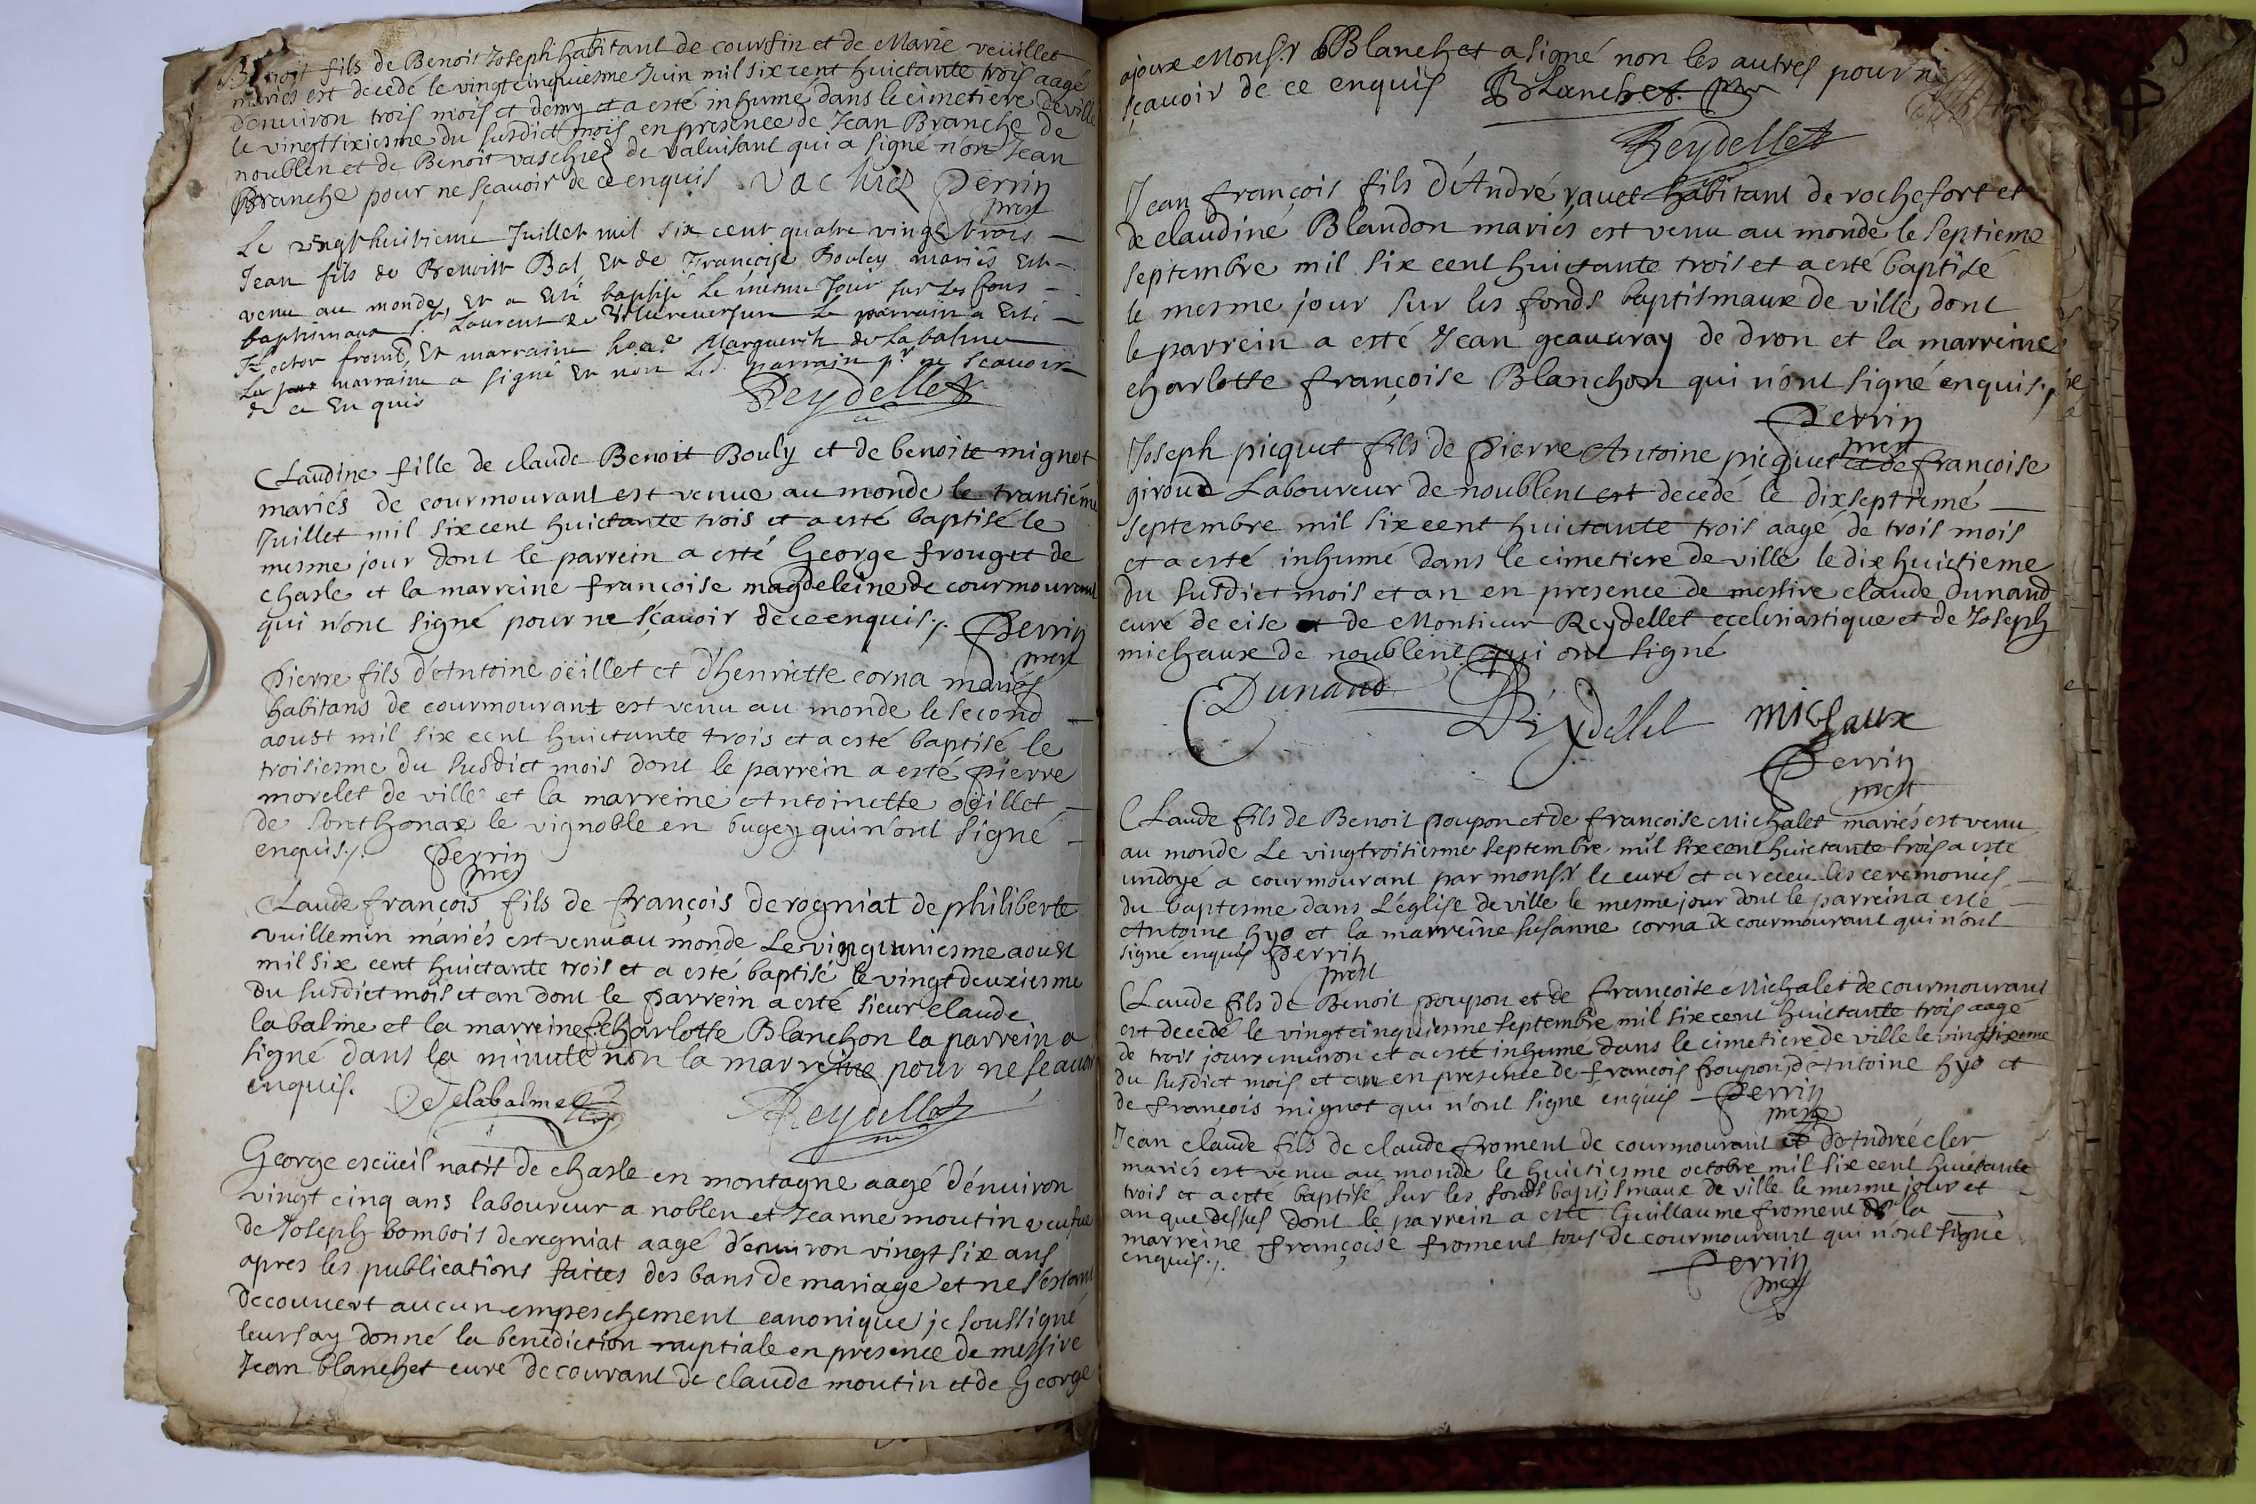 Benoit fils de Benoit Joseph habitant de courfin et de Marie veüillet
mariés est decedé le vingtcinquiesme Juin mil six cent huictante trois aagé
d'enuiron trois mois et demy et a esté inhumé dans le cimetiere de ville
le vingtsixiesme du susdict mois en presence de Jean Branche de
noublen et de Benoit vaschier de valuisant qui a signé non Jean
Branche pour ne sçauoir de ce enquis vachier Perrin
prest
Le vingt huitieme Juillet mil six cent quatre vingt trois
Jean fils de Benoist Bal Et de Françoise Bouley mariés Est
venu au monde, Et a Esté baptisé Le mesme Jour sur Les fons
baptismaux st Laurent de Villereuersure Le parrain a Esté
Hector froment, Et marraine Marguerite de Labalme
La marraine a signé Et non Led. parrain pr ne Scauoir
de ce En quis
Reydellet
Claudine fille de claude Benoit Bouly et de benoite mignot
mariés de courmourant est venue au monde le trantiéme
Juillet mil six cent huictante trois et a esté baptisé le
mesme jour dont le parrein a esté George frouget de
charle et la marreine françoise magdeleine de courmourant
qui n'ont signé pour ne sçauoir de ce enquis Perrin
prest
Pierre fils d'Antoine oëillet et d'henriette corna mariés
habitans de courmourant est venu au monde le second
aoust mil six cent huictante trois et a esté baptisé le
troisiesme du susdict mois dont le parrein a esté Pierre
morelet de ville et la marreine Antoinette oëillet
de Sonthonax le vignoble en bugey qui n'ont signé
enquis Perrin
prest
Claude françois fils de françois de rogniat de philiberte
vuillemin mariés est venu au monde Le vingtuniesme aoust
mil six cent huictante trois et a esté baptisé le vingtdeuxiesme
du susdict mois et an dont le parrein a esté sieur claude
labalme et la marreine charlotte Blanchon la parrein a
signé dans la minute non la marreine pour ne sçauoir
enquis. Delabalme Reydellet
George escüeil natif de charle en montagne aagé d'enuiron
vingt cinq ans laboureur a noblen et Jeanne moutin veufue
de Joseph bombois de regniat aagé d'enuiron vingt six ans
apres les publications faites des bans de mariage et ne s'estant
decouuert aucun empeschement canonique je soussigné
leurs ay donné la benediction nuptiale en presence de messire
Jean blanchet curé de courant de claude moutin et de George
ajoux Monsr Blanchet a signé non les autres pour ne
sçauoir de ce enquis Blanchet
Reydellet
Jean françois fils d'André rauet habitant de rochefort et
de claudine Blandon mariés est venu au monde le septieme
septembre mil six cent huictante trois et a esté baptisé
le mesme jour sur les fonds baptismaux de ville dont
le parrein a esté Jean geauuray de dron et la marreine
charlotte françoise Blanchon qui n'ont signé enquis
Perrin
prest
Joseph picquet fils de Pierre Antoine picquet et de françoise
giroud Laboureur de noublent est decedé le dixseptiéme
septembre mil six cent huictante trois aagé de trois mois
et a esté inhumé dans le cimetiere de ville le dix huictieme
du susdict mois et an en presence de messire claude Dunand
curé de cise et de Monsieur Reydellet ecclesiastique et de Joseph
michaux de noublent qui ont signé
Dunand Reydellet michaux
Perrin
prest
Claude fils de Benoit poupon et de françoise Michalet mariés est venu
au monde Le vingtroisiesme septembre mil six cent huictante trois a esté
undoyé a courmourant par monsr le curé et a receu les ceremonies
du baptesme dans L'église de ville le mesme jour dont le parrein a esté
Antoine hyo et la marreine susanne corna de courmourant qui n'ont
signé enquis Perrin
prest
Claude fils de Benoit poupon et de françoise Michalet de courmourant
est decedé le vingtcinquiesme septembre mil six cent huictante trois aagé
de trois jours enuiron et a esté inhumé dans le cimetiere de ville le vingtsixeme
du susdict mois et an en presence de françois poupon, d'Antoine hyo et
de françois mignot qui n'ont signé enquis Perrin
prest
Jean claude fils de claude froment de courmourant et d'Andreé cler
mariés est venu au monde le huictiesme octobre mil six cent huictante
trois et a esté baptisé sur les fonds baptismaux de ville le mesme jour et
an que dessus dont le parrein a esté Guillaume froment et la
marreine françoise froment tous de courmourant qui n'ont signé
enquis. Perrin
prest